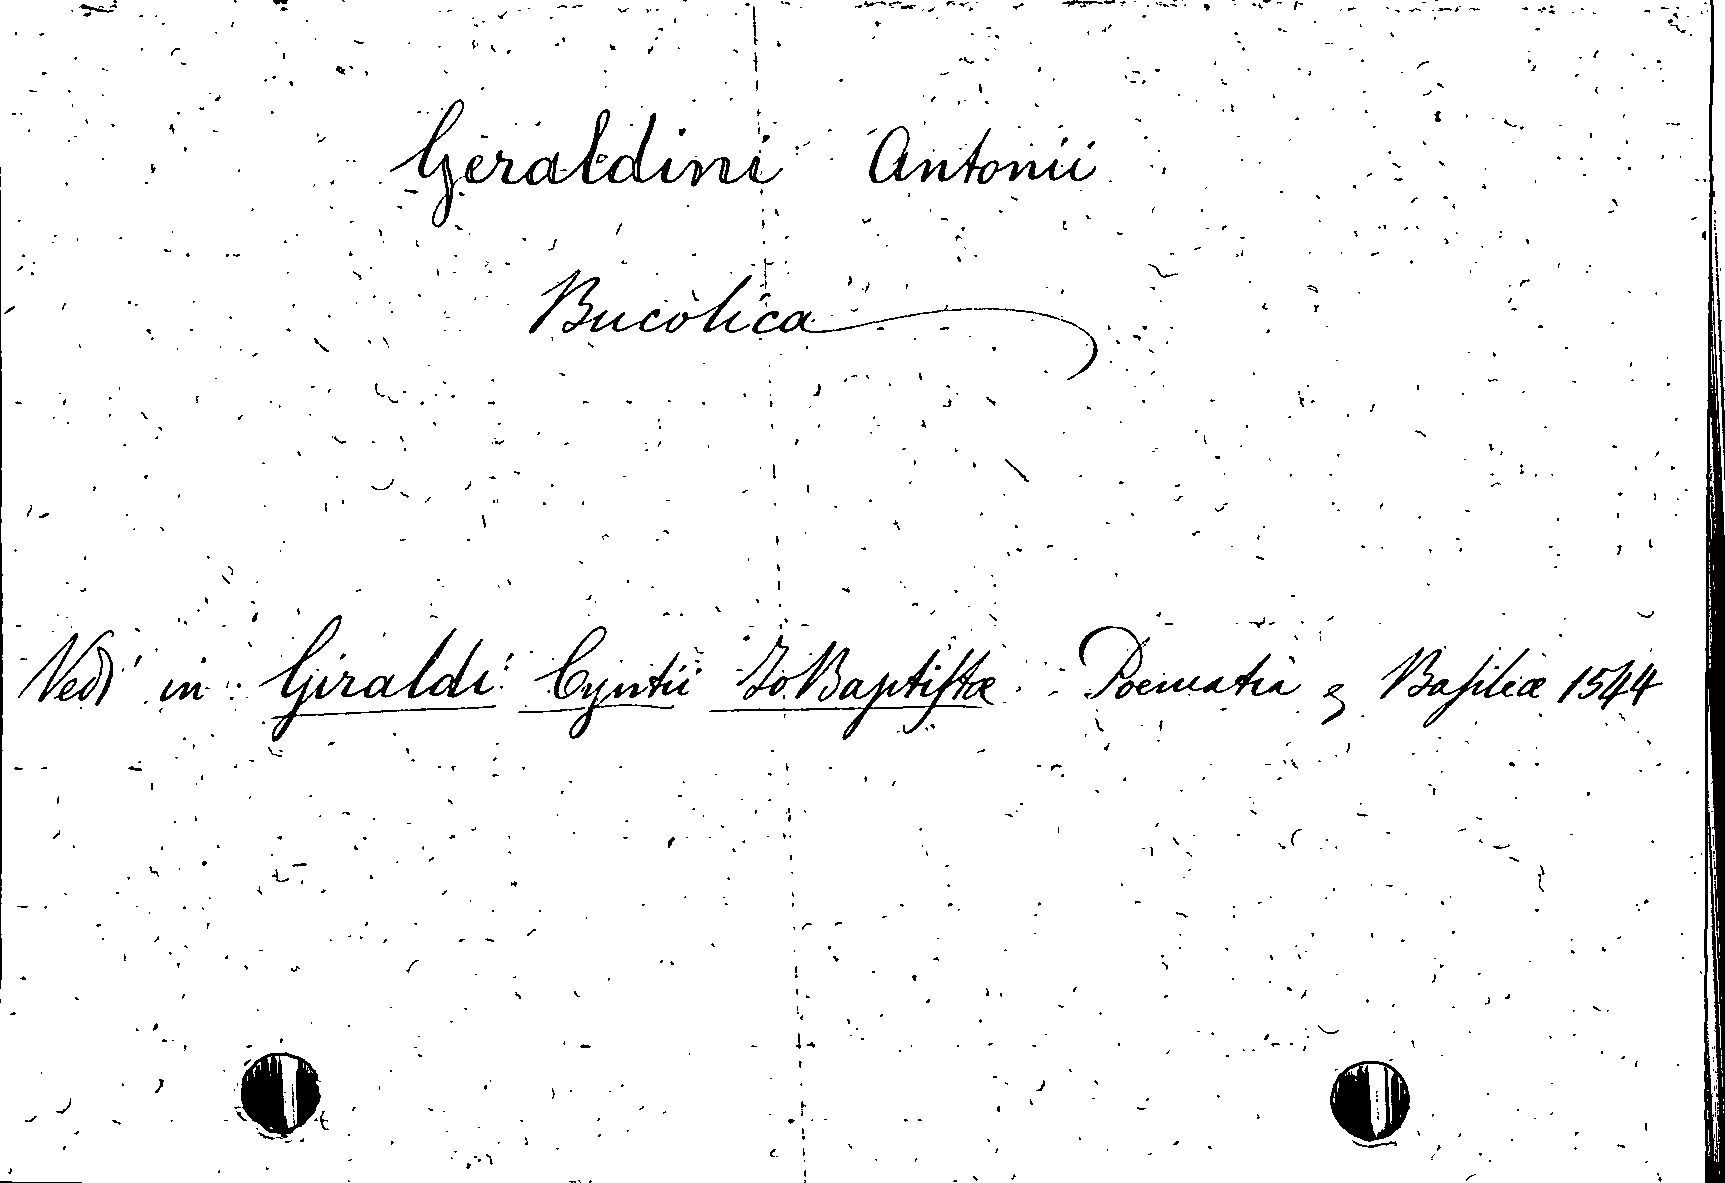 Geraldini Antonii
Bucolica
Vedi in Giraldi Cyntii Jo Baptistæ Poematia Basileæ 1544